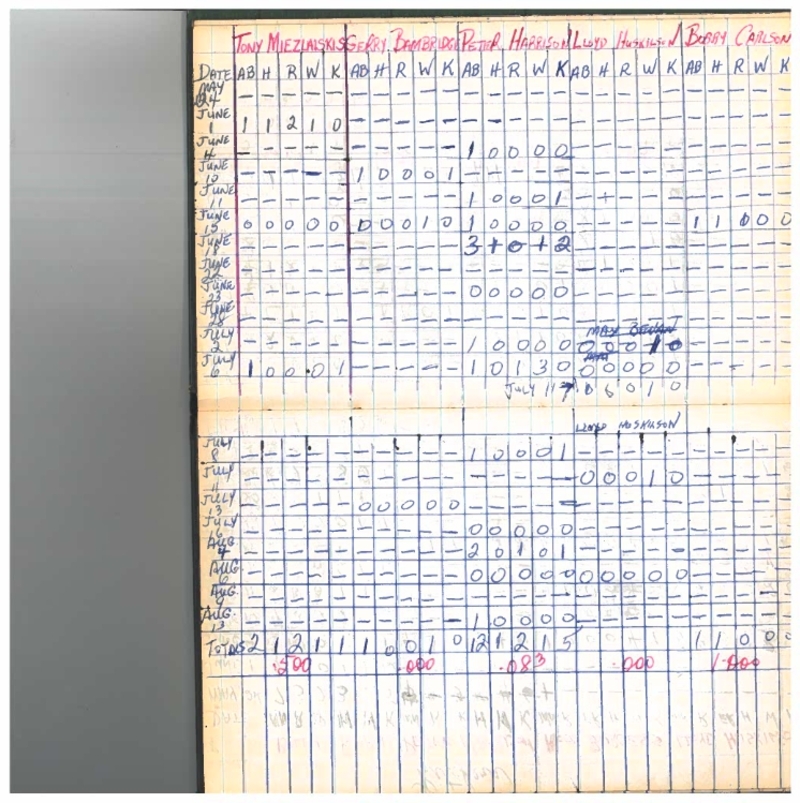 TONY MIEZLAISKIS GERRY BAMBRIDGE PETER HARRISON LLOYD HUSKILSON BOBBY CARLSON
DATE AB H R W K AB H R W K AB H R W K AB H R W K AB H R W K
MAY 24 – – – – – – – – – – – – – – – – – – – – – – – – –
JUNE 1 1 1 2 1 0 – – – – – – – – – – – – – – – – – – – –
JUNE 4 – – – – – – – – – – 1 0 0 0 0 – – – – – – – – – –
JUNE 10 – – – – – 1 0 0 0 1 – – – – – – – – – – – – – – –
JUNE 11 – – – – – – – – – – 1 0 0 0 1 – + – – – – – – – –
JUNE 15 0 0 0 0 0 0 0 0 1 0 1 0 0 0 0 – – – – – 1 1 0 0 0
JUNE 18 – – – – – – – – – – 3 + 0 + 2 – – – – – – – – – –
JUNE 22 – – – – – – – – – – – – – – – – – – – – – – – – –
JUNE 23 – – – – – – – – – – 0 0 0 0 0 – – – – – – – – – –
JUNE 28 – – – – – – – – – – – – – – – – – – – – – – – – –
MAX
JULY 2 – – – – – – – – – – 1 0 0 0 0 0 0 0 1 0 – – – – –
JULY 6 1 0 0 0 1 – – – – – 1 0 1 3 0 0 0 0 0 0 – – – – –
JULY 11 0 1 0
LLOYD HUSKILSON
JULY 8 – – – – – – – – – – 1 0 0 0 1 – – – – – – – – – –
JULY 11 – – – – – – – – – – – – – – – 0 0 0 1 0 – – – – –
JULY 13 – – – – – 0 0 0 0 0 – – – – – – – – – – – – – – –
JULY 16 – – – – – – – – – – 0 0 0 0 0 – – – – – – – – – –
AUG 4 – – – – – – – – – – 2 0 1 0 1 – – – – – – – – – –
AUG 6 – – – – – – – – – – 0 0 0 0 0 0 0 0 0 0 – – – – –
AUG 9 – – – – – – – – – – – – – – – – – – – – – – – – –
AUG. 13 – – – – – – – – – – 1 0 0 0 0 – – – – – – – – – –
TOTALS 2 1 2 1 1 1 0 0 1 0 12 1 2 1 5 1 1 0 0 0
.000 .083 .000 1.000